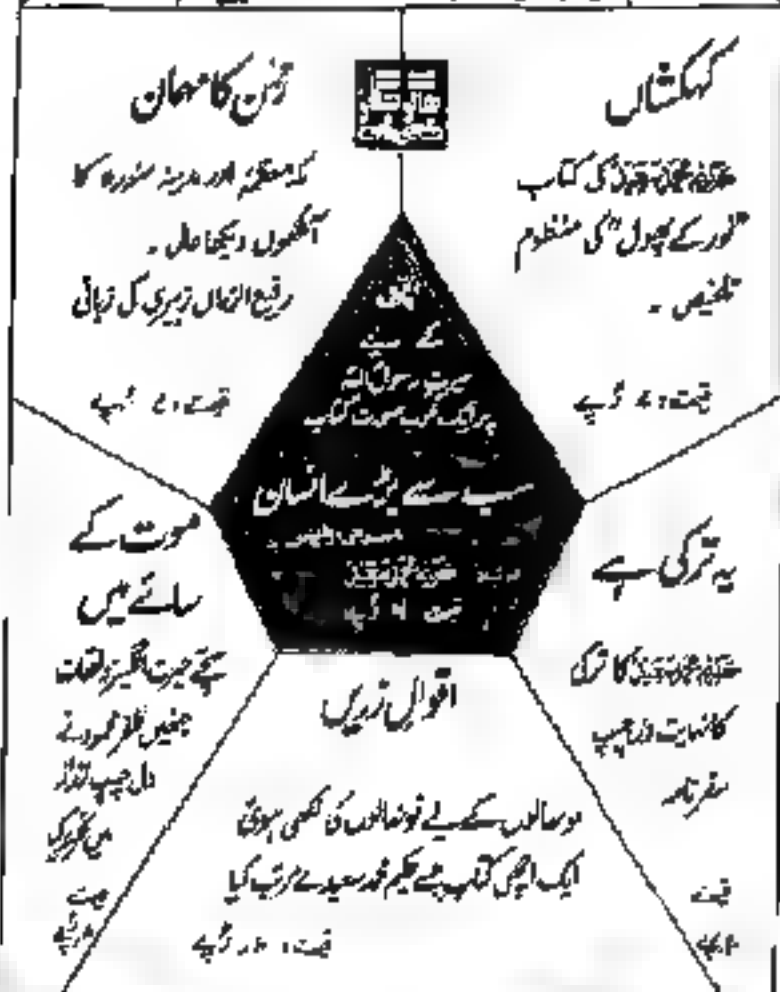 کہکشاں
حکیم محمد سعید کی کتاب
"نور کے پھول" کی منظوم
تلخیص ۔
قیمت: ۴ رُپے
رحمٰن کا مہمان
مکہ معظمہ اور مدینہ منورہ کا
آنکھوں دیکھا حال ۔
رفیع الزماں زبیری کی زبانی
قیمت: رُپے
کے لیے
سیرت رسولؐ اللہ
پر ایک خوب صورت کتاب
سب سے بڑے انسان
حکیم محمد سعید
قیمت رُپے
یہ ترکی ہے
حکیم محمد سعید کا ترکی
کا نہایت دلچسپ
سفرنامہ
قیمت
رُپے
موت کے
سائے میں
سچے حیرت انگیز واقعات
جنھیں ظفر محمود نے
دل چسپ انداز
میں تحریر کیا
قیمت
رُپے
اقوالِ زریں
نونہالوں کے لیے نونہالوں کی لکھی ہوئی
ایک اچھی کتاب جسے حکیم محمد سعید نے مرتب کیا
قیمت: رُپے